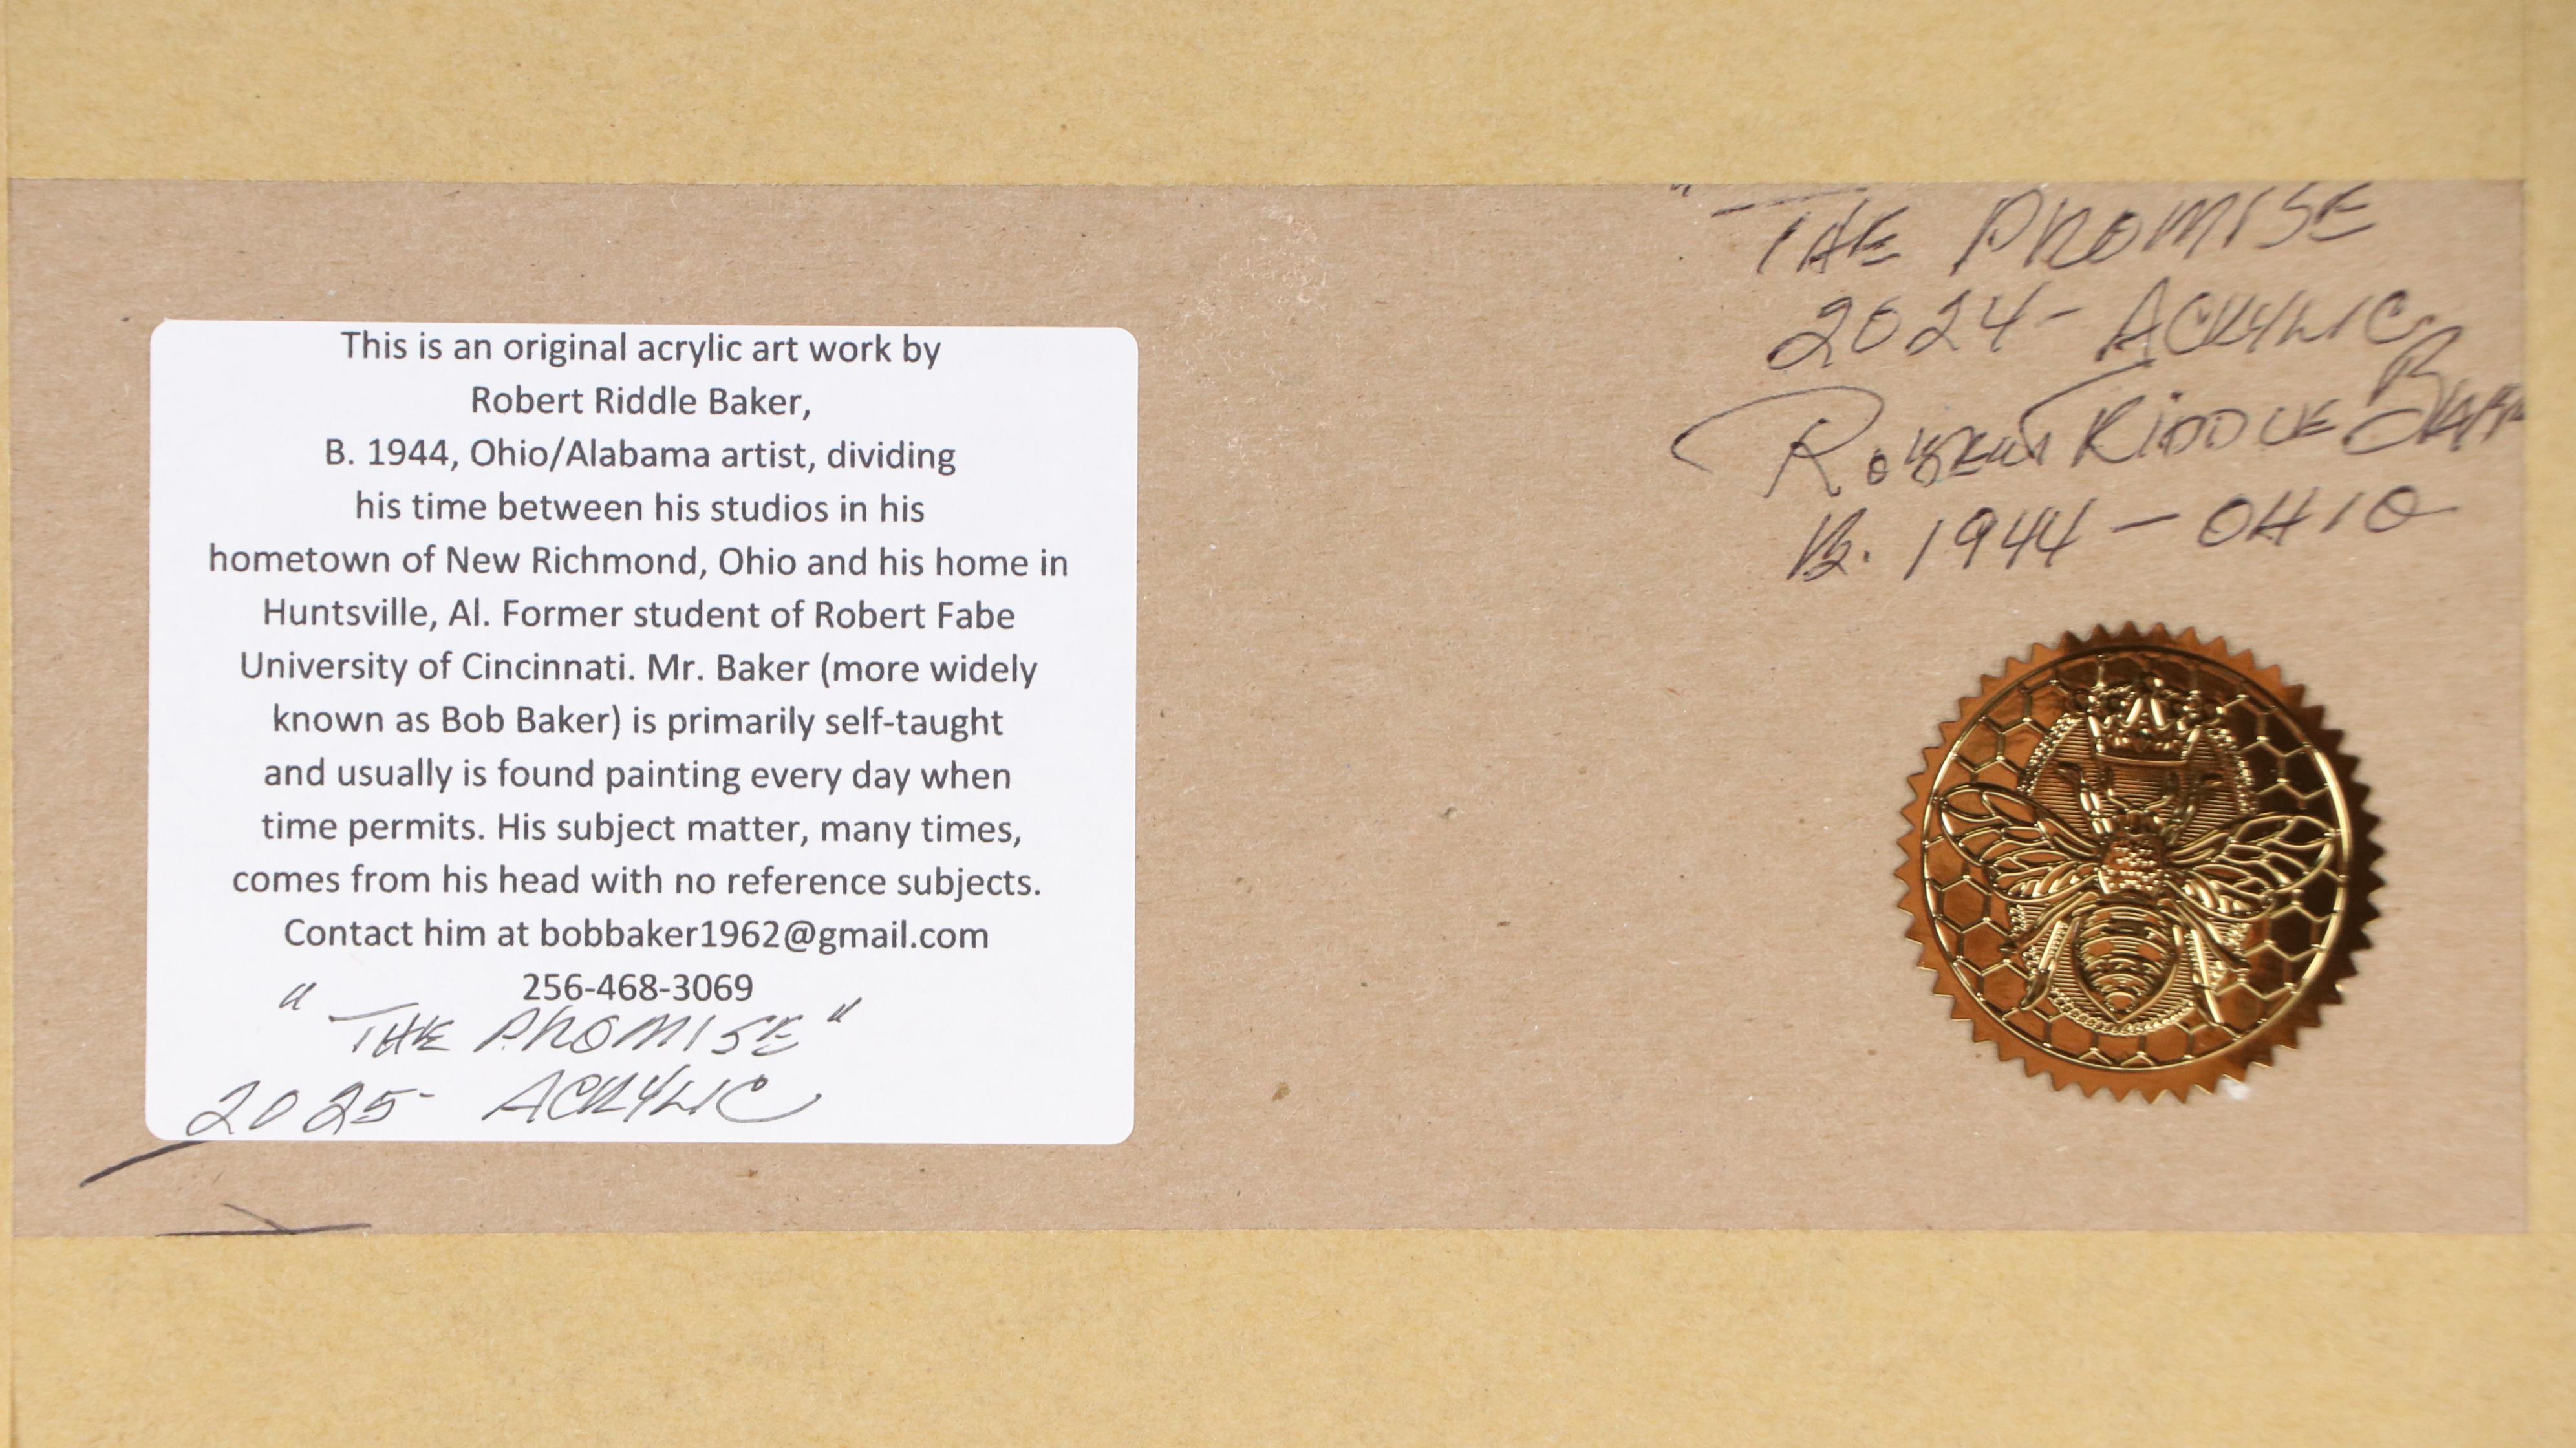 This is an original acrylic art work by
Robert Riddle Baker,
B. 1944, Ohio/Alabama artist, dividing
his time between his studios in his
hometown of New Richmond, Ohio and his home in
Huntsville, Al. Former student of Robert Fabe
University of Cincinnati. Mr. Baker (more widely
known as Bob Baker) is primarily self-taught
and usually is found painting every day when
time permits. His subject matter, many times,
comes from his head with no reference subjects.
Contact him at bobbaker1962@gmail.com
256-468-3069
"THE PROMISE"
2025- ACRYLIC
"THE PROMISE
2024- ACRYLIC
ROBERT RIDDLE BAKER
B. 1944 - OHIO